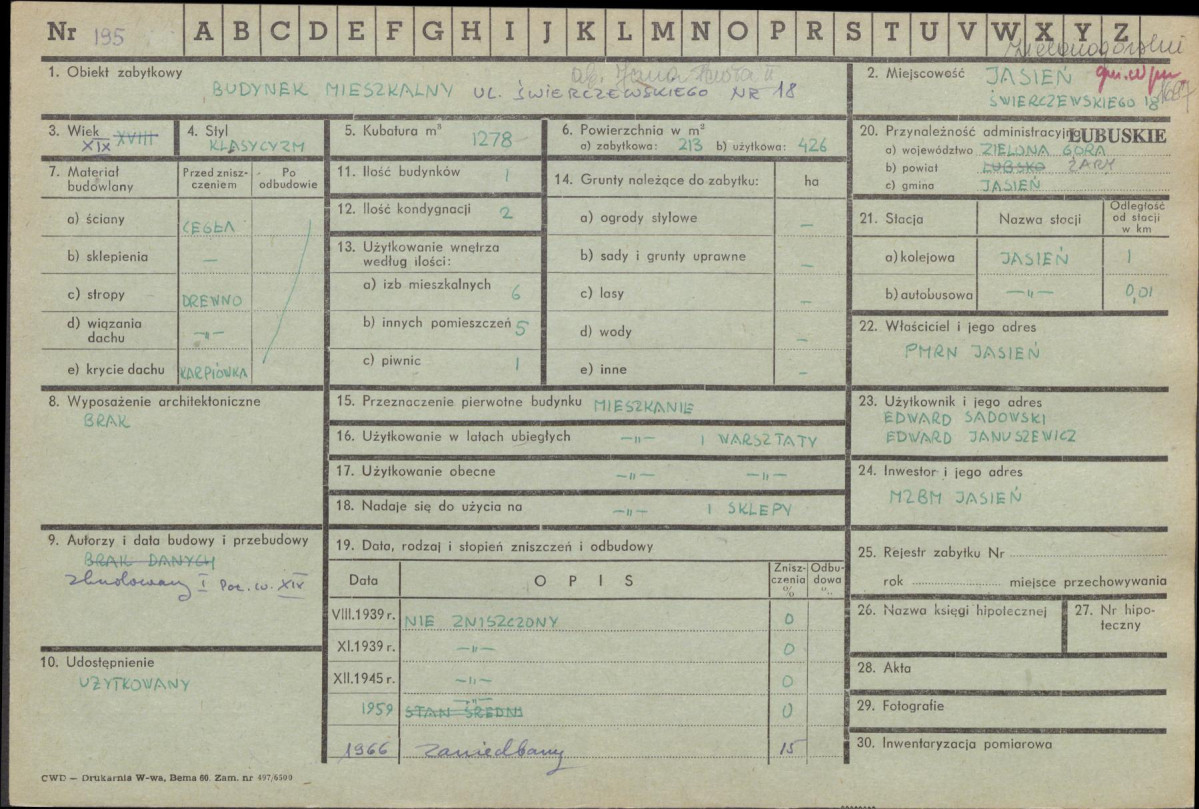 Nr 195 A B C D E F G H I J K L M N O P R S T U V W X Y Z
1. Obiekt zabytkowy
ob. Jana Pawła II
BUDYNEK MIESZKALNY UL. ŚWIERCZEWSKIEGO NR 18
2. Miejscowość JASIEŃ
ŚWIERCZEWSKIEGO 18
3. Wiek XVIII
XIX
4. Styl
KLASYCYZM
5. Kubatura m³
1278
6. Powierzchnia w m²
a) zabytkowa: 213 b) użytkowa: 426
20. Przynależność administracyjna LUBUSKIE
a) województwo ZIELONA GÓRA
b) powiat LUBSKO ŻARY
c) gmina JASIEŃ
7. Materiał budowlany
Przed zniszczeniem
Po odbudowie
a) ściany CEGŁA
b) sklepienia —
c) stropy DREWNO
d) wiązania dachu —„—
e) krycie dachu KARPIÓWKA
11. Ilość budynków 1
12. Ilość kondygnacji 2
13. Użytkowanie wnętrza
według ilości:
a) izb mieszkalnych 6
b) innych pomieszczeń 5
c) piwnic 1
14. Grunty należące do zabytku: ha
a) ogrody stylowe —
b) sady i grunty uprawne —
c) lasy —
d) wody —
e) inne —
21. Stacja Nazwa stacji Odległość od stacji w km
a) kolejowa JASIEŃ 1
b) autobusowa —„— 0,01
22. Właściciel i jego adres
PMRN JASIEŃ
8. Wyposażenie architektoniczne
BRAK
15. Przeznaczenie pierwotne budynku MIESZKANIE
16. Użytkowanie w latach ubiegłych —„— I WARSZTATY
17. Użytkowanie obecne —„— —„—
18. Nadaje się do użycia na —„— I SKLEPY
23. Użytkownik i jego adres
EDWARD SADOWSKI
EDWARD JANUSZEWICZ
24. Inwestor i jego adres
MZBM JASIEŃ
9. Autorzy i data budowy i przebudowy
BRAK DANYCH
zbudowany I Poł. w. XIX
10. Udostępnienie
UŻYTKOWANY
19. Data, rodzaj i stopień zniszczeń i odbudowy
Data OPIS Zniszczenia % Odbudowa %
VIII.1939 r. NIE ZNISZCZONY 0
XI.1939 r. —„— 0
XII.1945 r. —„— 0
—„—
1959 STAN ŚREDNI 0
1966 zaniedbany 15
25. Rejestr zabytku Nr
rok miejsce przechowywania
26. Nazwa księgi hipotecznej
27. Nr hipoteczny
28. Akta
29. Fotografie
30. Inwentaryzacja pomiarowa
CWD — Drukarnia W-wa, Bema 60. Zam. nr 497/6500